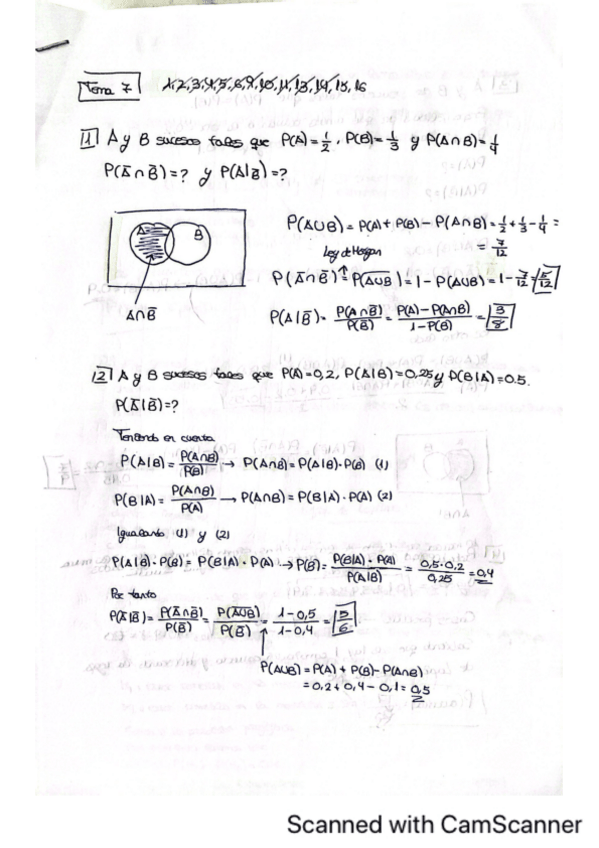 Tema 7 1,2,3,4,5,6,9,10,11,13,14,15,16
1 A y B sucesos tales que P(A)=1/2, P(B)=1/3 y P(A∩B)=1/4
P(Ā∩B̄)=? y P(A|B̄)=?
P(A∪B)=P(A)+P(B)-P(A∩B)=1/2+1/3-1/4=
=7/12
A B
Ley de Morgan
P(Ā∩B̄)=P(A∪B)‾=1-P(A∪B)=1-7/12=5/12
A∩B̄
P(A|B̄)=P(A∩B̄)/P(B̄)=P(A)-P(A∩B)/1-P(B)=3/8
2 A y B sucesos tales que P(A)=0,2, P(A|B)=0,25 y P(B|A)=0.5.
P(Ā|B̄)=?
Teniendo en cuenta
P(A|B)=P(A∩B)/P(B) → P(A∩B)=P(A|B)·P(B) (1)
P(B|A)=P(A∩B)/P(A) → P(A∩B)=P(B|A)·P(A) (2)
Igualando (1) y (2)
P(A|B)·P(B)=P(B|A)·P(A) → P(B)=P(B|A)·P(A)/P(A|B)=0,5·0,2/0,25=0,4
Por tanto
P(Ā|B̄)=P(Ā∩B̄)/P(B̄)=P(A∪B)‾/P(B̄)=1-0,5/1-0,4=5/6
P(A∪B)=P(A)+P(B)-P(A∩B)
=0,2+0,4-0,1=0,5
Scanned with CamScanner